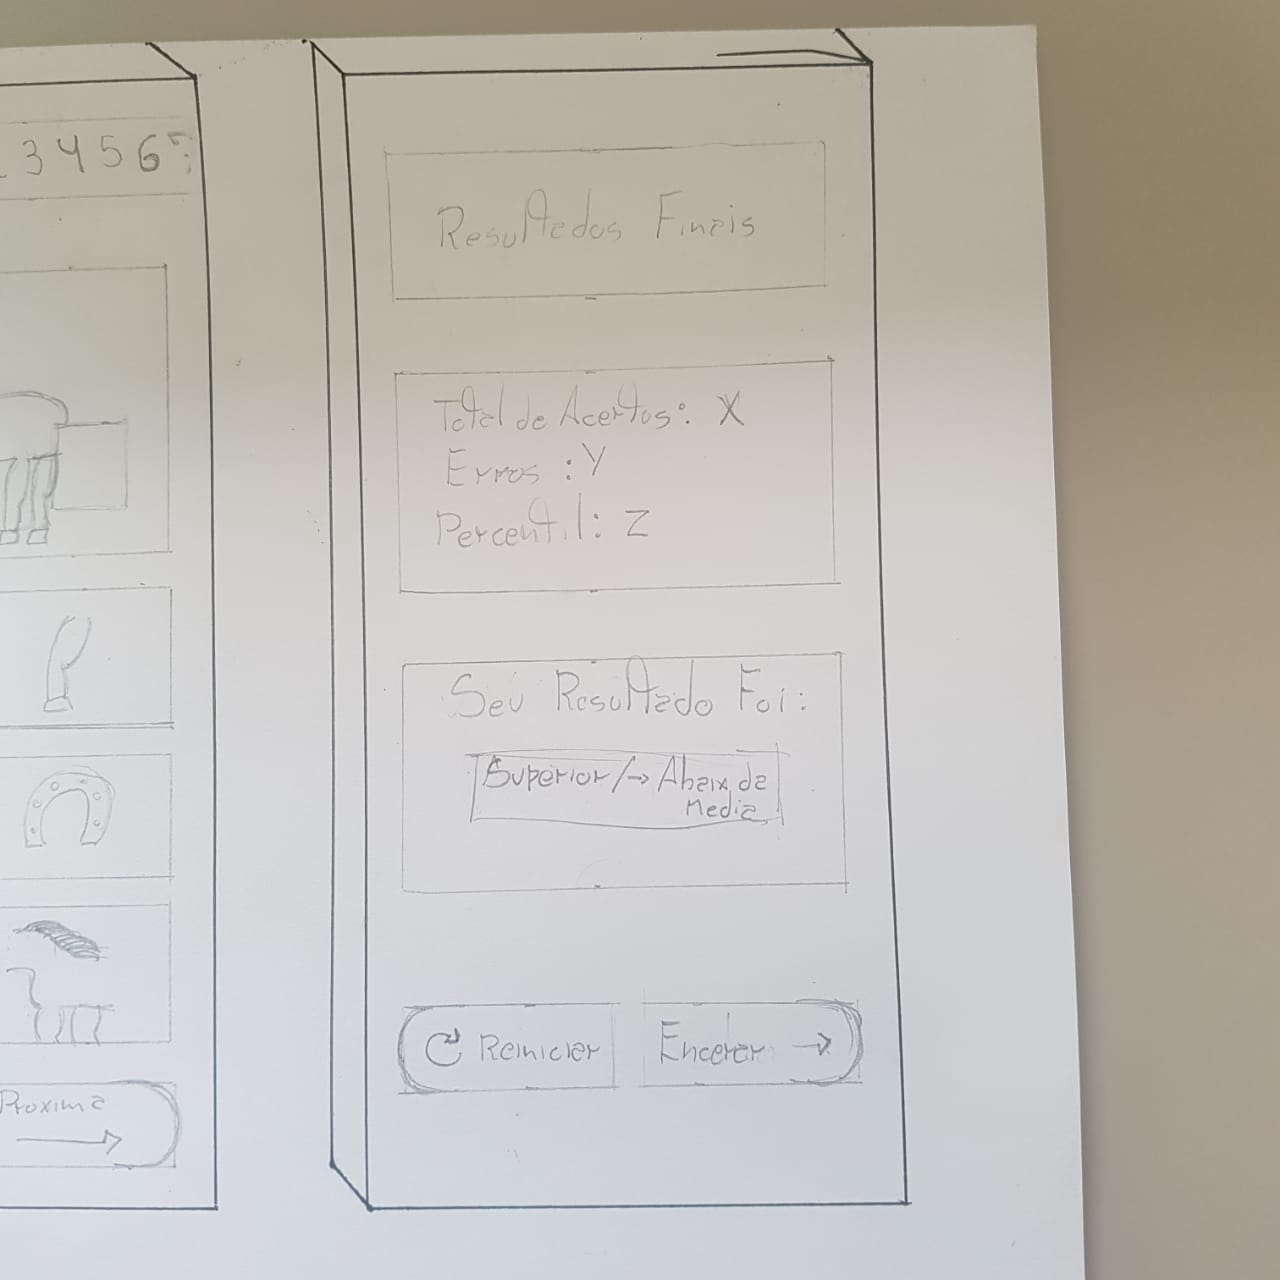 3 4 5 6
Proxima
Resultados Finais
Total de Acertos: X
Erros : Y
Percentil: Z
Seu Resultado Foi:
Superior / → Abaix. da
Media
Reiniciar
Encerer →